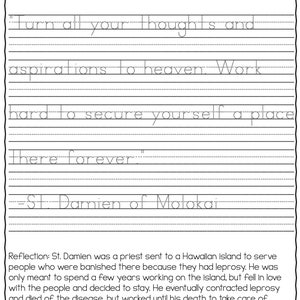 "Turn all your thoughts and
aspirations to heaven. Work
hard to secure yourself a place
there forever."
-St. Damien of Molokai
Reflection: St. Damien was a priest sent to a Hawaiian island to serve
people who were banished there because they had leprosy. He was
only meant to spend a few years working on the island, but fell in love
with the people and decided to stay. He eventually contracted leprosy
and died of the disease, but worked until his death to take care of